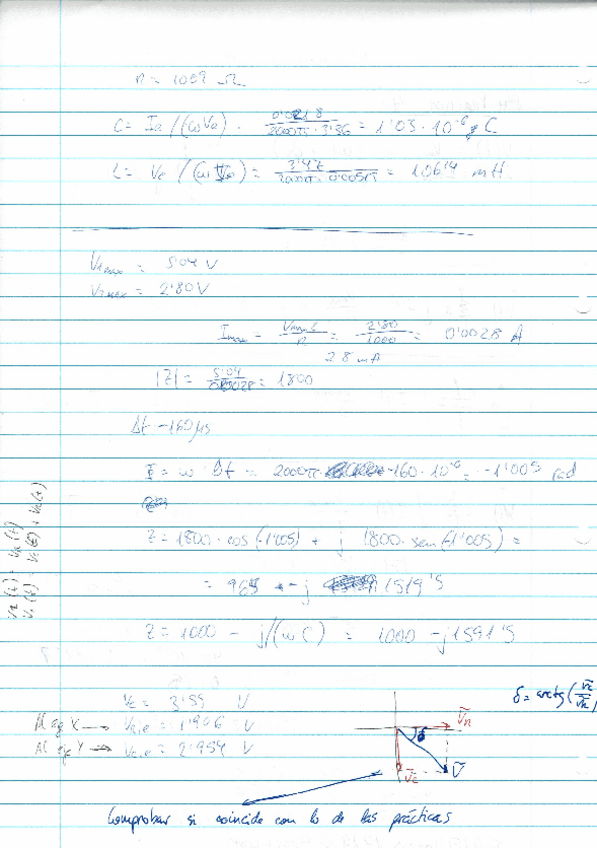 R = 1069 Ω
C = Ia / (ω Va) = 0'0218 / 2000π · 3'36 = 1'03 · 10^-6 C
L = Vc / (ω I) = 3'47 / 2000π · = 106'4 mH
V1max = 5'04 V
V2max = 2'80 V
Imax = / R = 2'80 / 1000 = 0'0028 A
2'8 mA
|Z| = 5'04 / 0'0028 = 1800
Δt -160 μs
Φ = ω · Δt = 2000π · -160 · 10^-6 = -1'005 rad
Z = 1800 · cos (-1'005) + j 1800 · sen (-1'005) =
= 965 - j 1519'5
Z = 1000 - j/(ω C) = 1000 - j1591'5
V2 (t) = VR (t)
V1 (t) = Vc (t) + VR (t)
Vc = 3'59 V
Al eje X → VR,e = 1'906 V
Al eje Y → Vc,e = 2'954 V
δ = arctg (Vc / VR)
VR
δ
Vc
V
Comprobar si coincide con lo de las prácticas